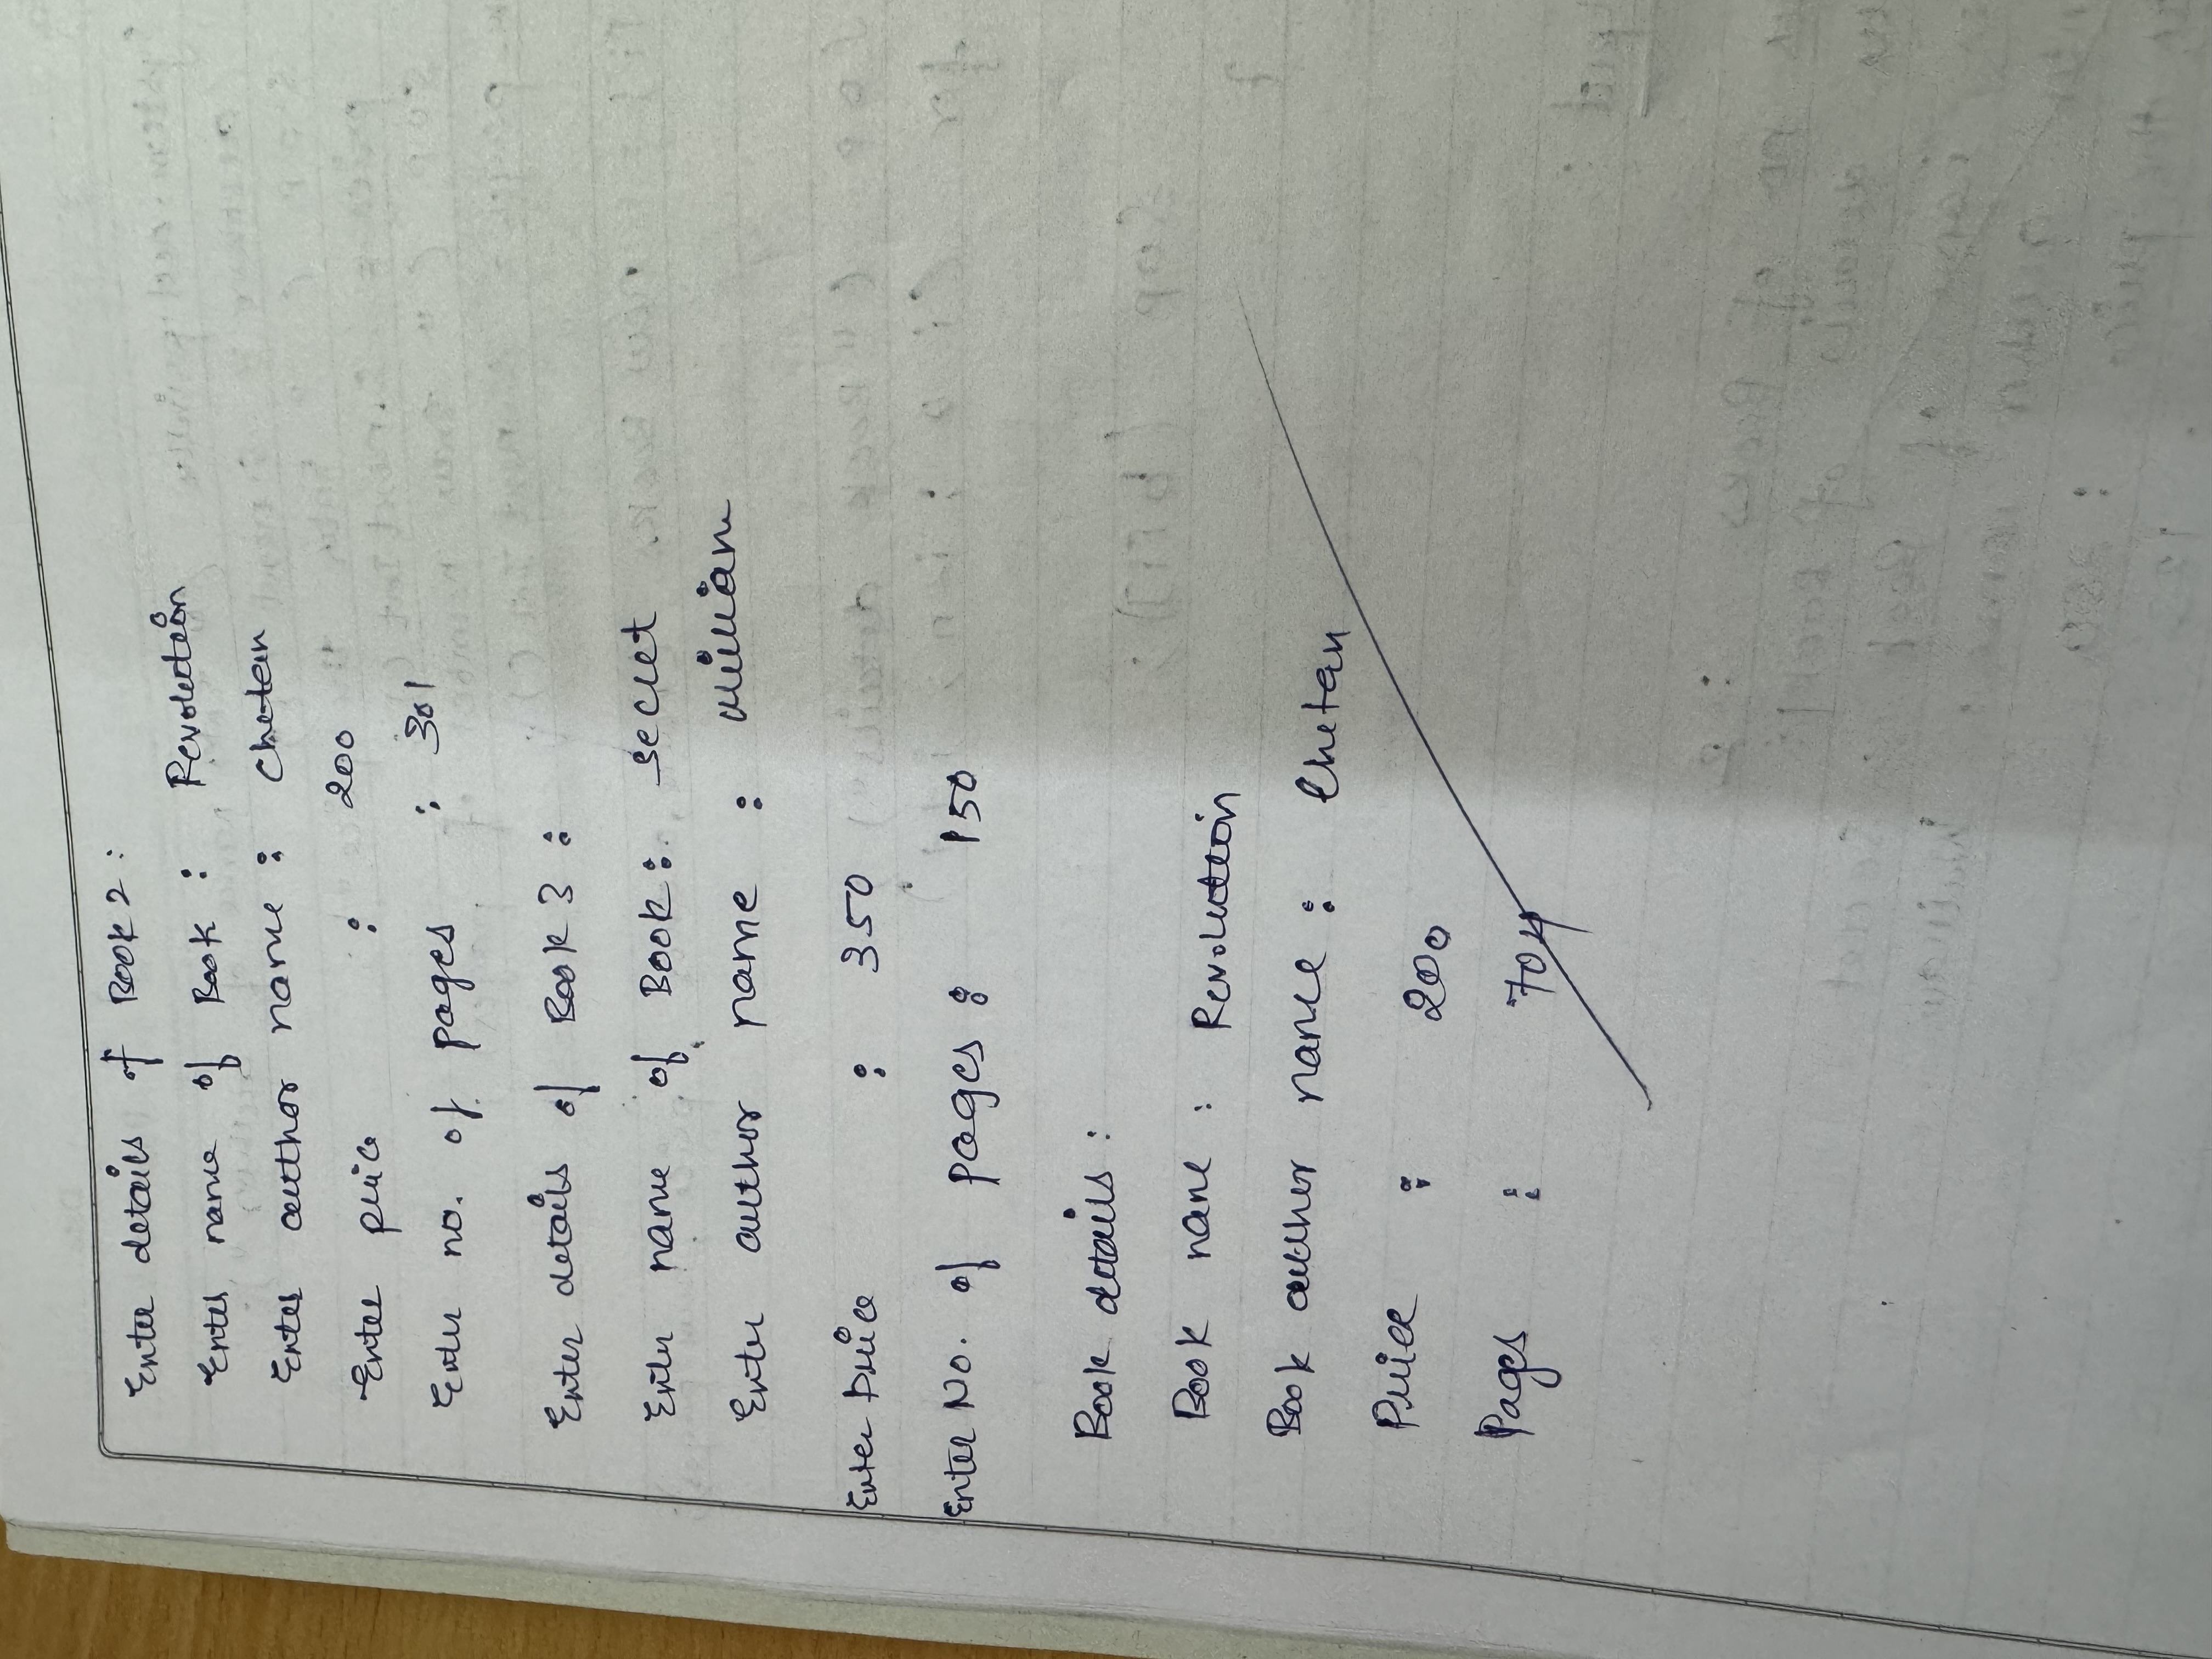 Enter details of Book 2 :
Enter name of Book : Revolution
Enter author name : Chetan
Enter price : 200
Enter no. of pages : 301
Enter details of Book 3 :
Enter name of Book : secret
Enter author name : William
Enter Price : 350
Enter No. of pages : 150
Book details :
Book name : Revolution
Book author name : Chetan
Price : 200
Pages : 704